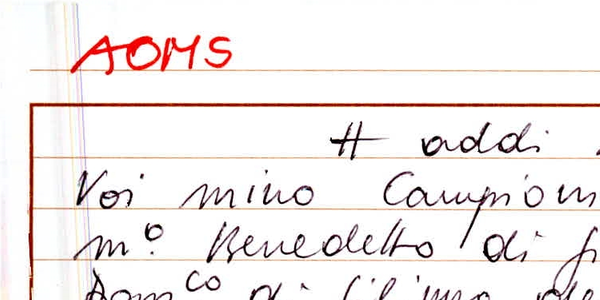 AOMS
# addi
Voi mino Campion
mº. Benedetto di
Dom^co di